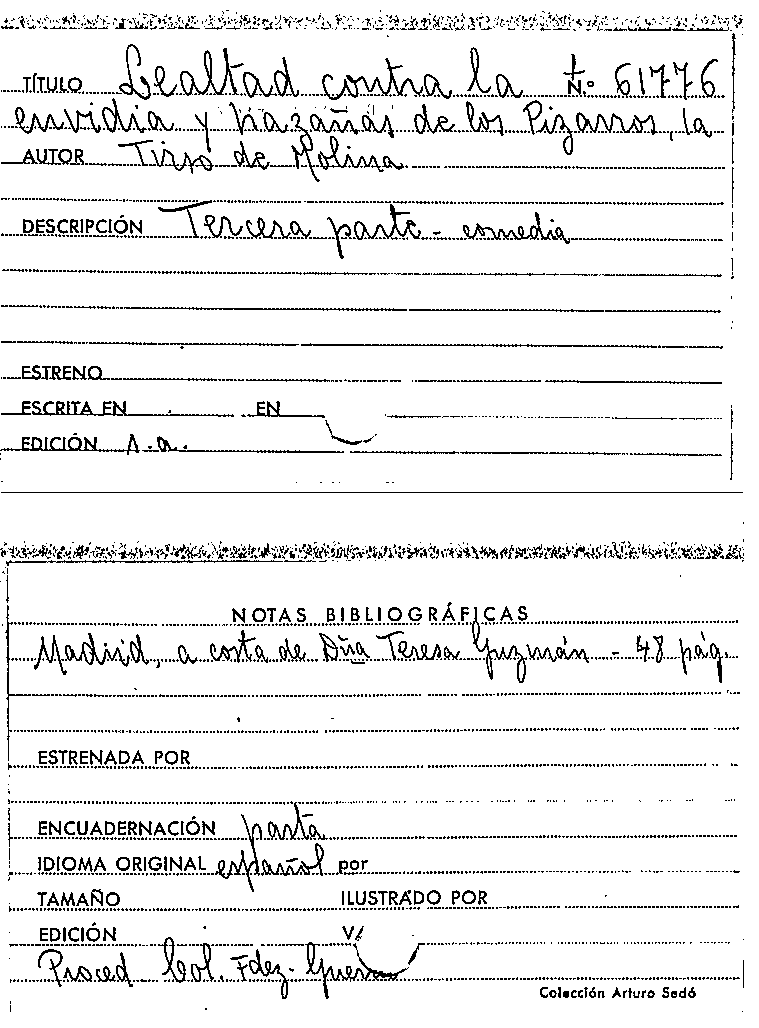 TÍTULO Lealtad contra la N.º 61776
envidia y hazañas de los Pizarros, la
AUTOR Tirso de Molina
DESCRIPCIÓN Tercera parte - comedia
ESTRENO
ESCRITA EN EN
EDICIÓN s.a.
NOTAS BIBLIOGRÁFICAS
Madrid, a costa de Dña Teresa Guzmán - 48 pág.
ESTRENADA POR
ENCUADERNACIÓN pasta
IDIOMA ORIGINAL español por
TAMAÑO ILUSTRADO POR
EDICIÓN
Proced Col. Fdez-Guerra
Colección Arturo Sedó